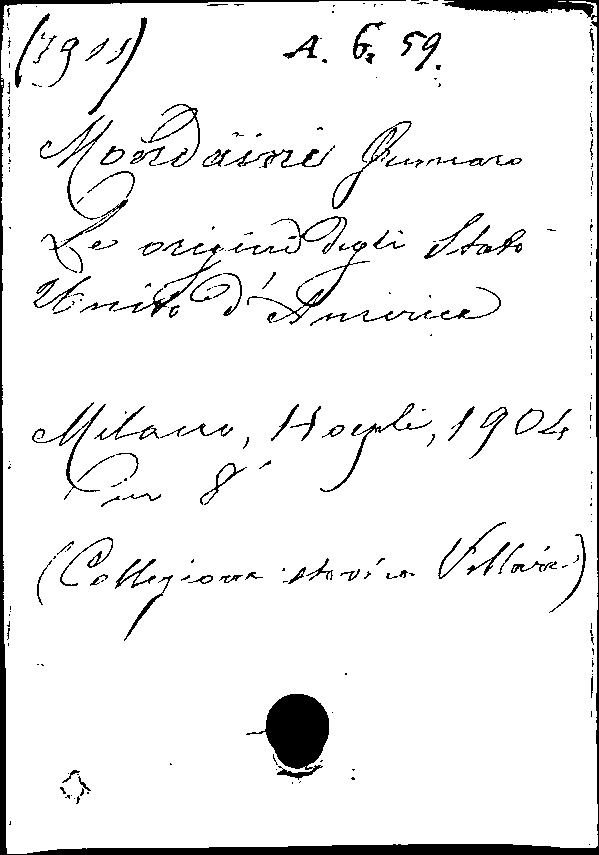 (7911) A. 6. 59.
Mondaini Gennaro
Le origini degli Stati
Uniti d'America
Milano, Hoepli, 1904
in 8°
(Collezione storica Villari)